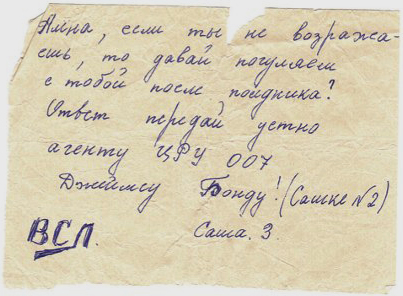 Ална, если ты не возража-
ешь, то давай погуляем
с тобой после полдника?
Ответ передай устно
агенту ЦРУ 007
Джеймсу Бонду! (Сашке №2)
ВСЛ. Саша. З.